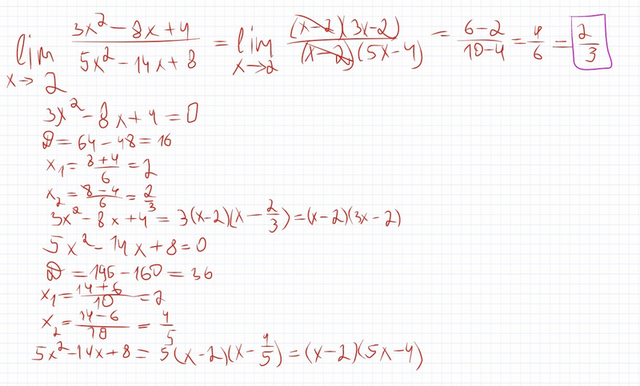 lim x→2 (3x² − 8x + 4)/(5x² − 14x + 8) = lim x→2 ((x−2)(3x−2))/((x−2)(5x−4)) = (6−2)/(10−4) = 4/6 = 2/3
3x² − 8x + 4 = 0
D = 64 − 48 = 16
x₁ = (8+4)/6 = 2
x₂ = (8−4)/6 = 2/3
3x² − 8x + 4 = 3(x−2)(x − 2/3) = (x−2)(3x−2)
5x² − 14x + 8 = 0
D = 196 − 160 = 36
x₁ = (14+6)/10 = 2
x₂ = (14−6)/10 = 4/5
5x² − 14x + 8 = 5(x−2)(x − 4/5) = (x−2)(5x−4)